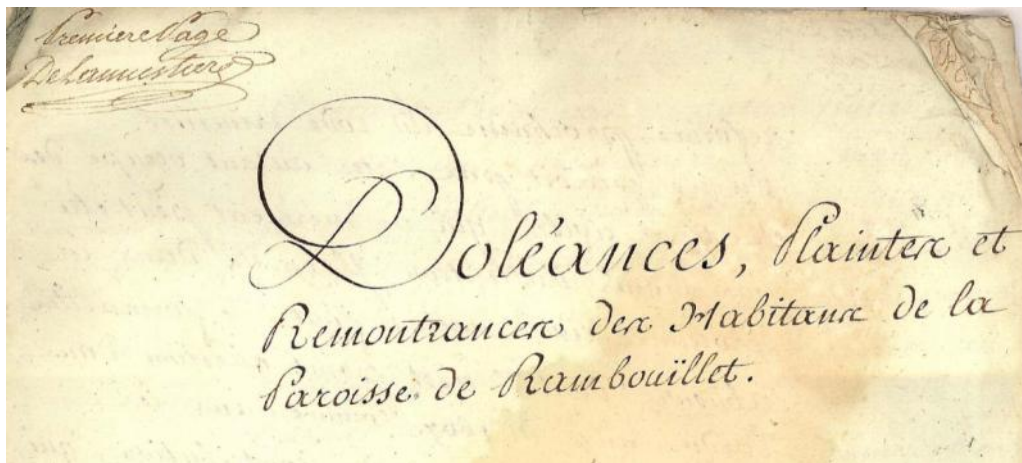 Premiere Page
DeLamustiere
Doléances, Plaintes et
Remontrances des Habitans de la
Paroisse de Rambouïllet.